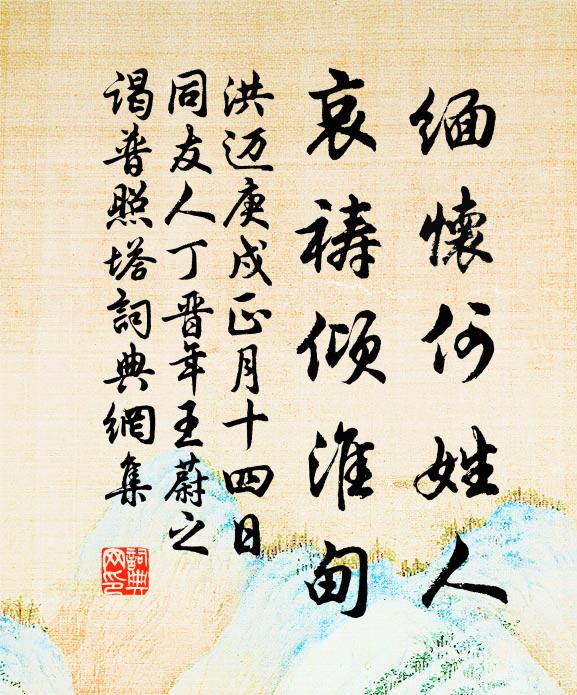 缅懷何姓人
哀祷倾淮甸
洪迈庚戌正月十四日
同友人丁晋年王蔚之
谒普照塔詞典網集
詞典网印